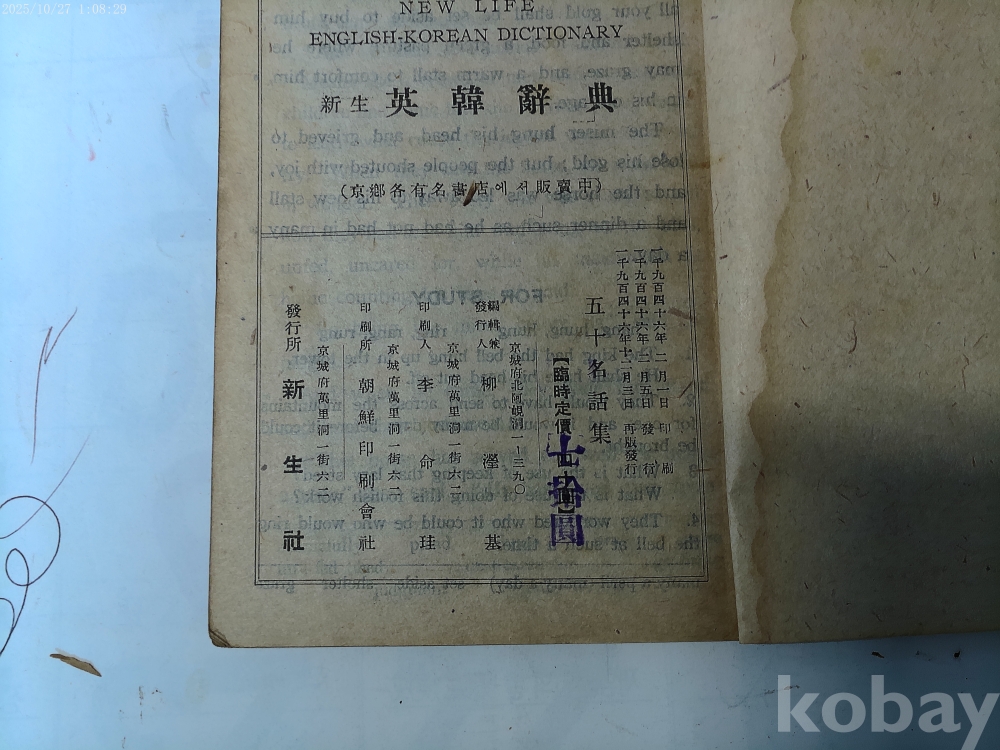 2025/10/27 1:08:29
NEW LIFE
ENGLISH-KOREAN DICTIONARY
新生 英韓辭典
(京鄕各有名書店에서販賣中)
一千九百四十六年二月一日 印刷
一千九百四十六年二月五日 發行
一千九百四十六年十一月三日 再版發行
五十名話集
【臨時定價
七拾圓
京城府北阿峴洞一ー三九〇
編輯兼發行人 柳瀅基
京城府萬里洞一街六二
印刷人 李命珪
京城府萬里洞一街六二
印刷所 朝鮮印刷會社
京城府萬里洞一街六二
發行所 新生社
kobay